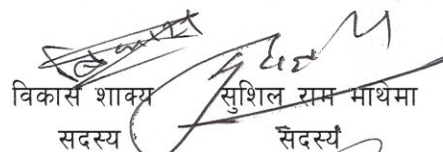 विकास शाक्य सुशिल राम माथेमा
सदस्य सदस्य